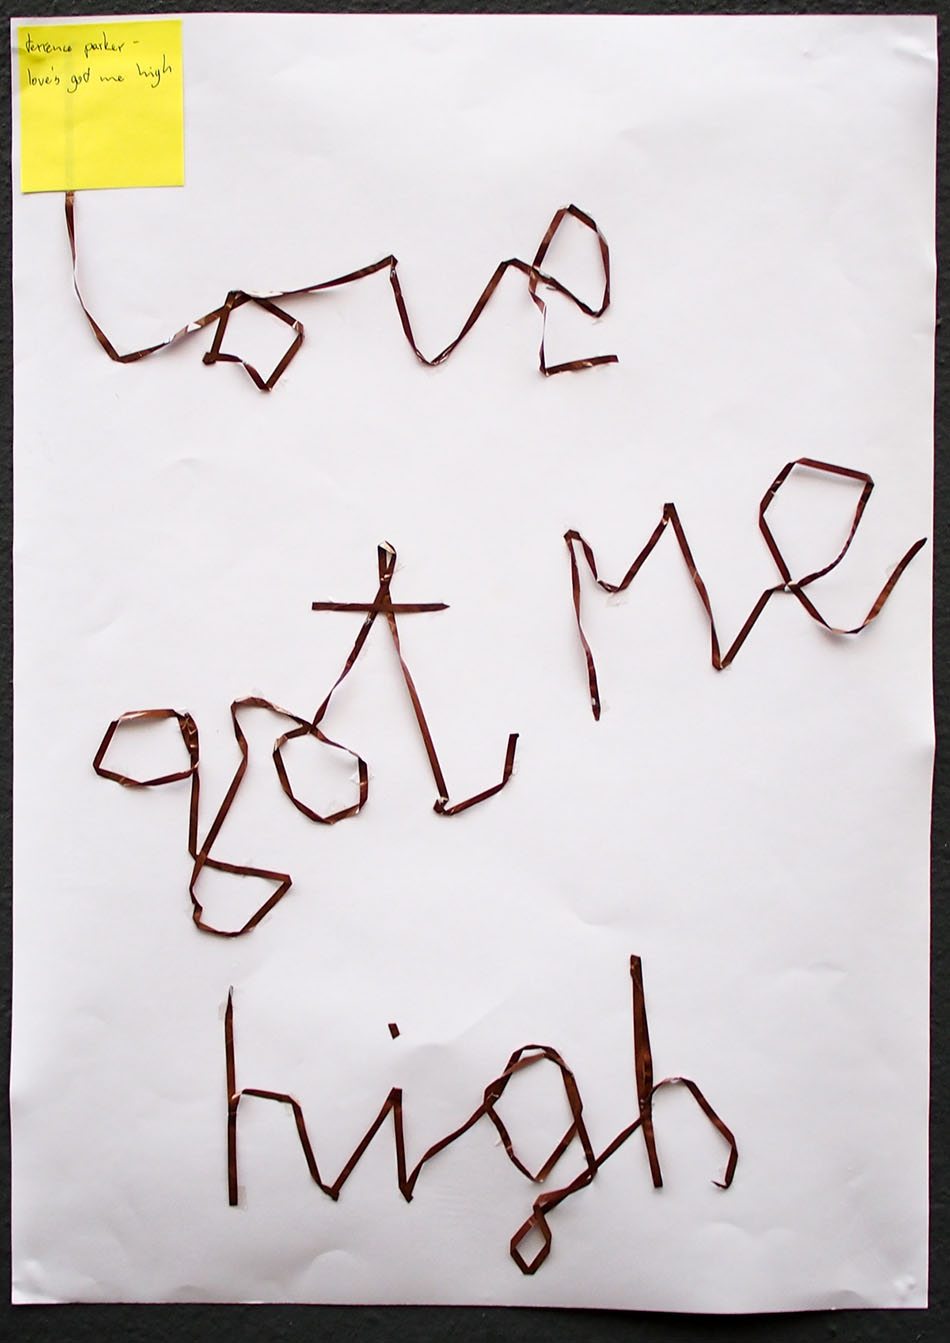 terrence parker -
love's got me high
love
got me
high